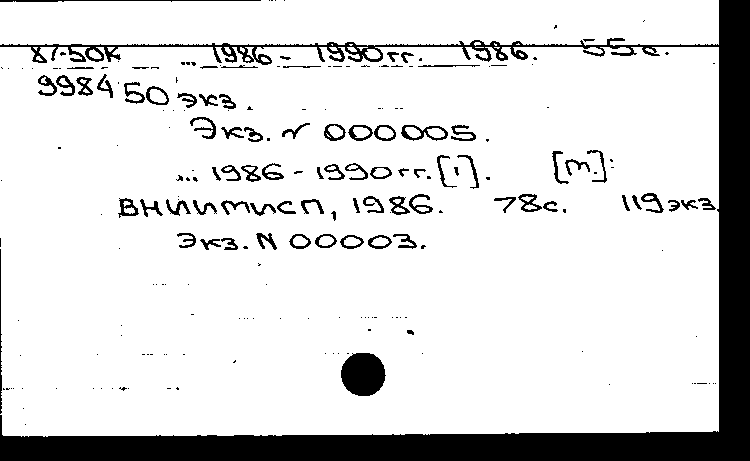 87-50К ... 1986 - 1990 гг. 1986. 55 с.
9984 50 экз.
Экз. N 000005.
... 1986 - 1990 гг. [1]. [М.]:
ВНИИМИСП, 1986. 78 с. 119 экз.
Экз. N 00003.